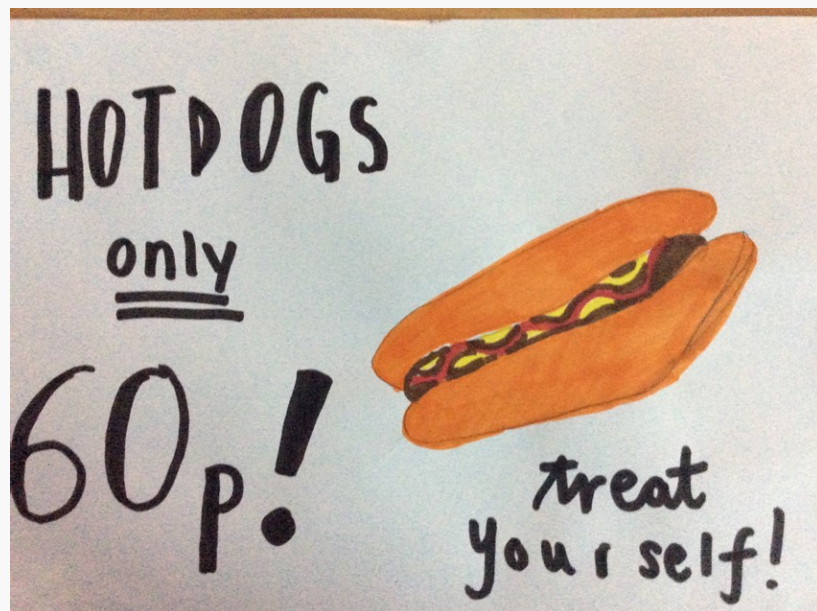 HOTDOGS
only
60p!
treat
yourself!